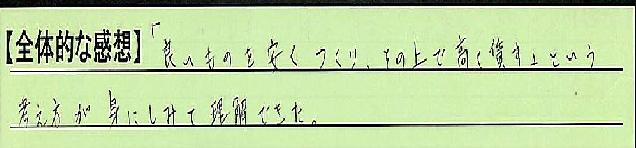 【全体的な感想】「良いものを安くつくり、その上で高く貸す」という
考え方が身にしみて理解できた。